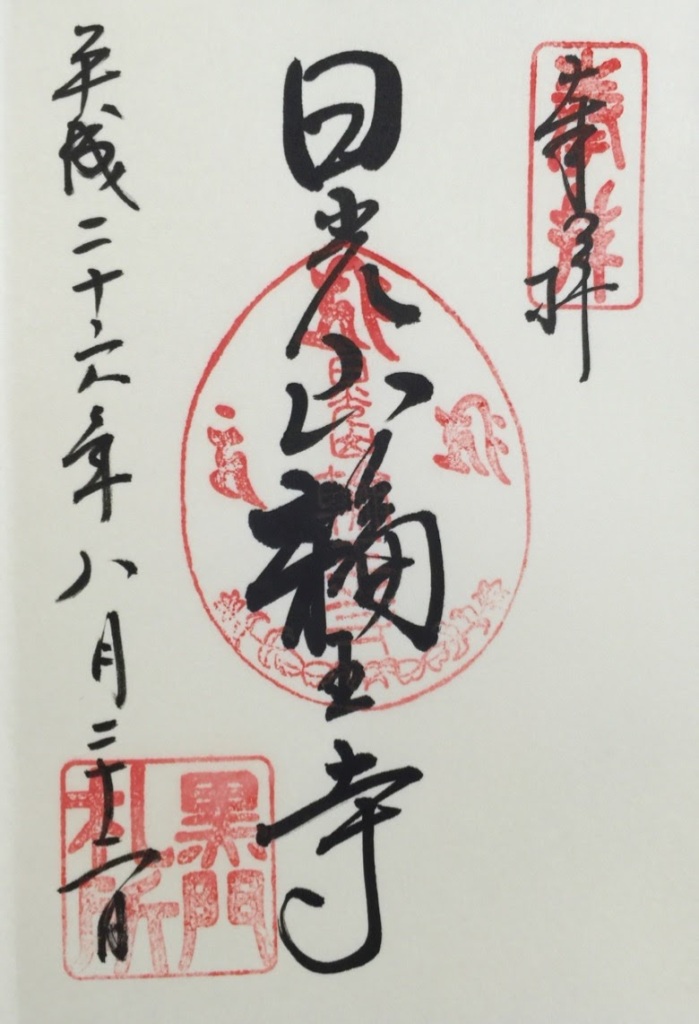 奉拝
奉拝
日光山輪王寺
平成二十六年八月二十二日
黒門
札所